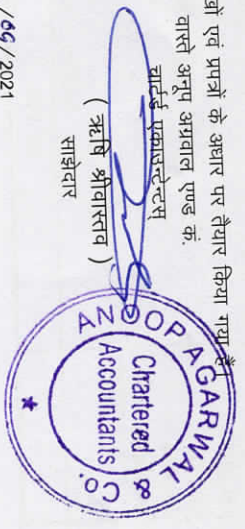 खों एवं प्रपत्रों के अधार पर तैयार किया गया है।
वास्ते अनूप अग्रवाल एण्ड कं.
चार्टर्ड एकाउन्टेन्टस्
( ऋषि श्रीवास्तव )
साझेदार
/ 06 / 2021
ANOOP AGARWAL & CO.
Chartered
Accountants
★